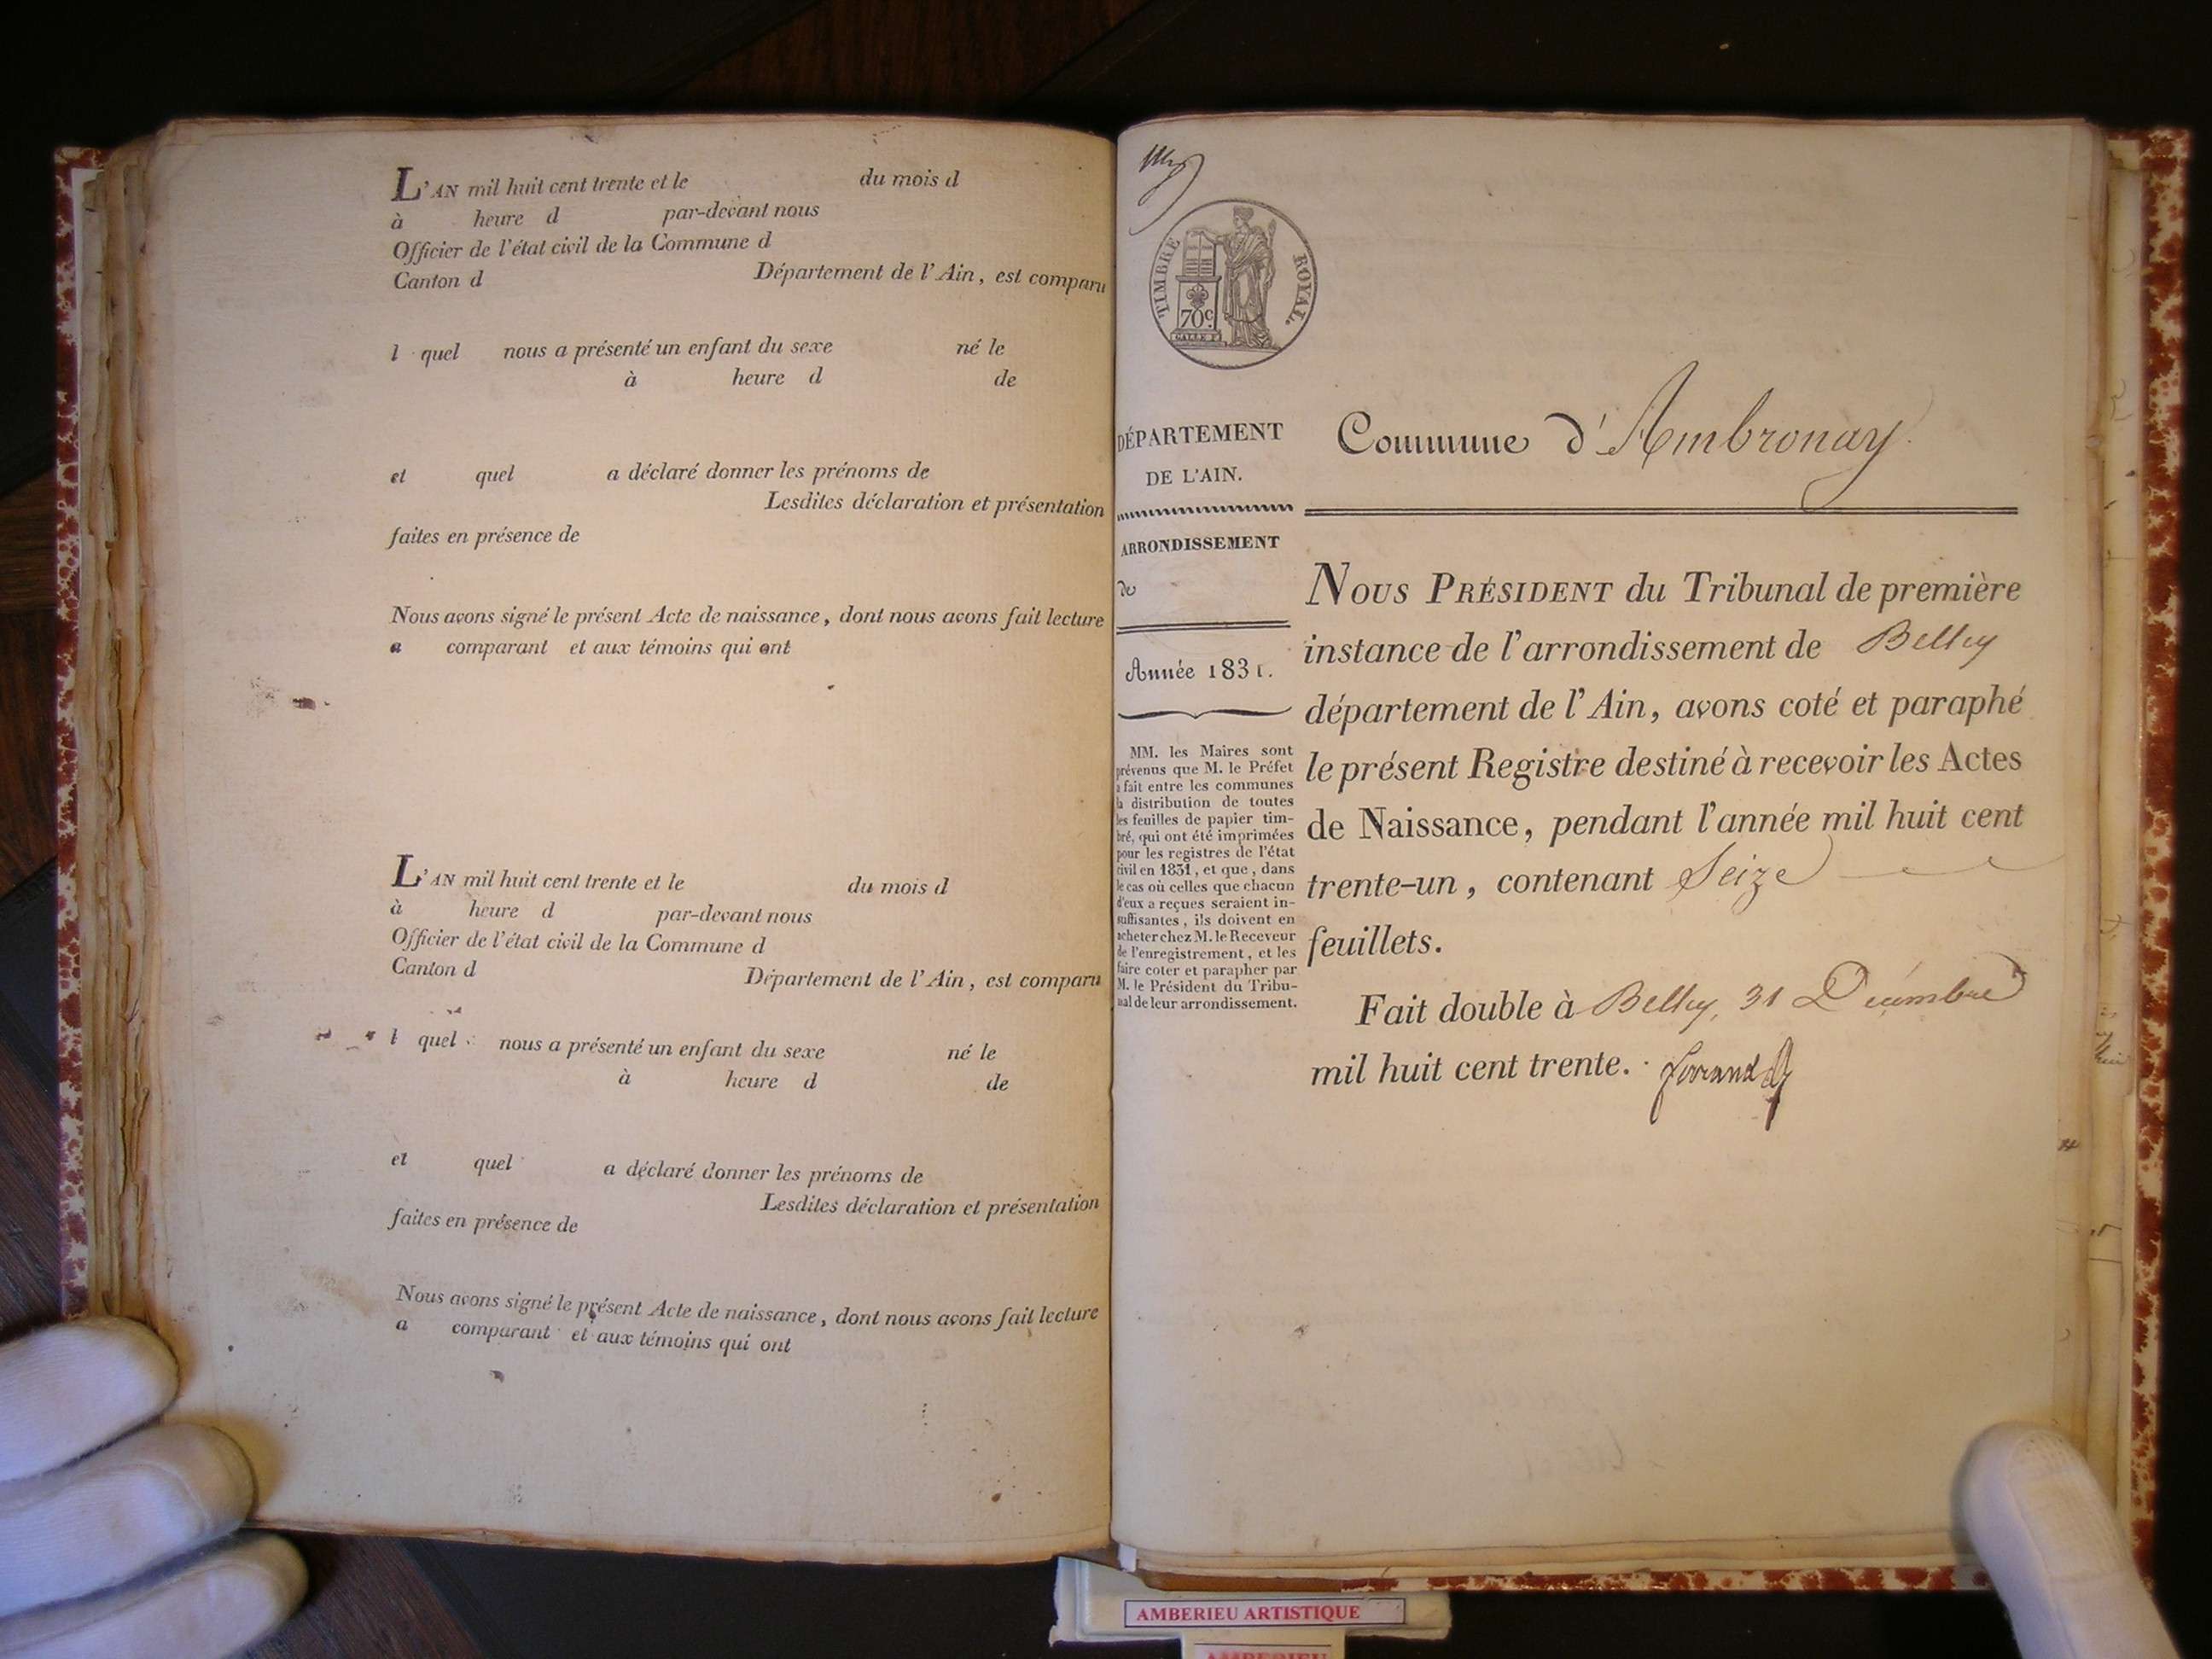 L'AN mil huit cent trente et le du mois d
à heure d par-devant nous
Officier de l'état civil de la Commune d
Canton d Département de l'Ain, est comparu
l quel nous a présenté un enfant du sexe né le
à heure d de
et quel a déclaré donner les prénoms de
Lesdites déclaration et présentation
faites en présence de
Nous avons signé le présent Acte de naissance, dont nous avons fait lecture
a comparant et aux témoins qui ont
L'AN mil huit cent trente et le du mois d
à heure d par-devant nous
Officier de l'état civil de la Commune d
Canton d Département de l'Ain, est comparu
l quel nous a présenté un enfant du sexe né le
à heure d de
et quel a déclaré donner les prénoms de
Lesdites déclaration et présentation
faites en présence de
Nous avons signé le présent Acte de naissance, dont nous avons fait lecture
a comparant et aux témoins qui ont
TIMBRE ROYAL.
70c.
DÉPARTEMENT
DE L'AIN.
ARRONDISSEMENT
de
Année 1831.
MM. les Maires sont
prévenus que M. le Préfet
a fait entre les communes
la distribution de toutes
les feuilles de papier tim-
bré, qui ont été imprimées
pour les registres de l'état
civil en 1831, et que, dans
le cas où celles que chacun
d'eux a reçues seraient in-
suffisantes, ils doivent en
acheter chez M. le Receveur
de l'enregistrement, et les
faire coter et parapher par
M. le Président du Tribu-
nal de leur arrondissement.
Commune d'Ambronay
NOUS PRÉSIDENT du Tribunal de première
instance de l'arrondissement de Belley
département de l'Ain, avons coté et paraphé
le présent Registre destiné à recevoir les Actes
de Naissance, pendant l'année mil huit cent
trente-un, contenant Seize
feuillets.
Fait double à Belley, 31 Décembre
mil huit cent trente.
AMBERIEU ARTISTIQUE
AMBERIEU